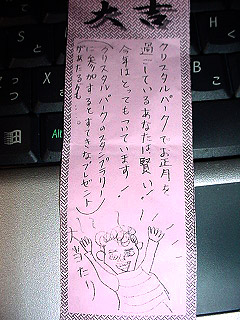 大吉
クリスタルパークでお正月を
過ごしているあなたは賢い!
今年はとってもついています!
クリスタルパークのスタンプラリー
に参加するとすてきなプレゼント
があたるかも…
大当たり
Alt